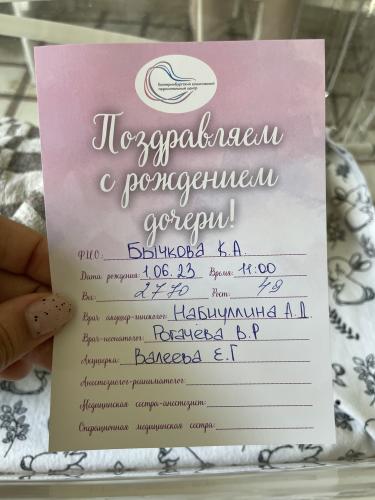 Екатеринбургский клинический
перинатальный центр
Поздравляем
с рождением
дочери!
ФИО: Бычкова К.А.
Дата рождения: 1.06.23 Время: 11:00
Вес: 2770 Рост: 49
Врач акушер-гинеколог: Набиуллина А.Д.
Врач-неонатолог: Рогачёва В.Р
Акушерка: Валеева Е.Г
Анестезиолог-реаниматолог:
Медицинская сестра-анестезист:
Операционная медицинская сестра: